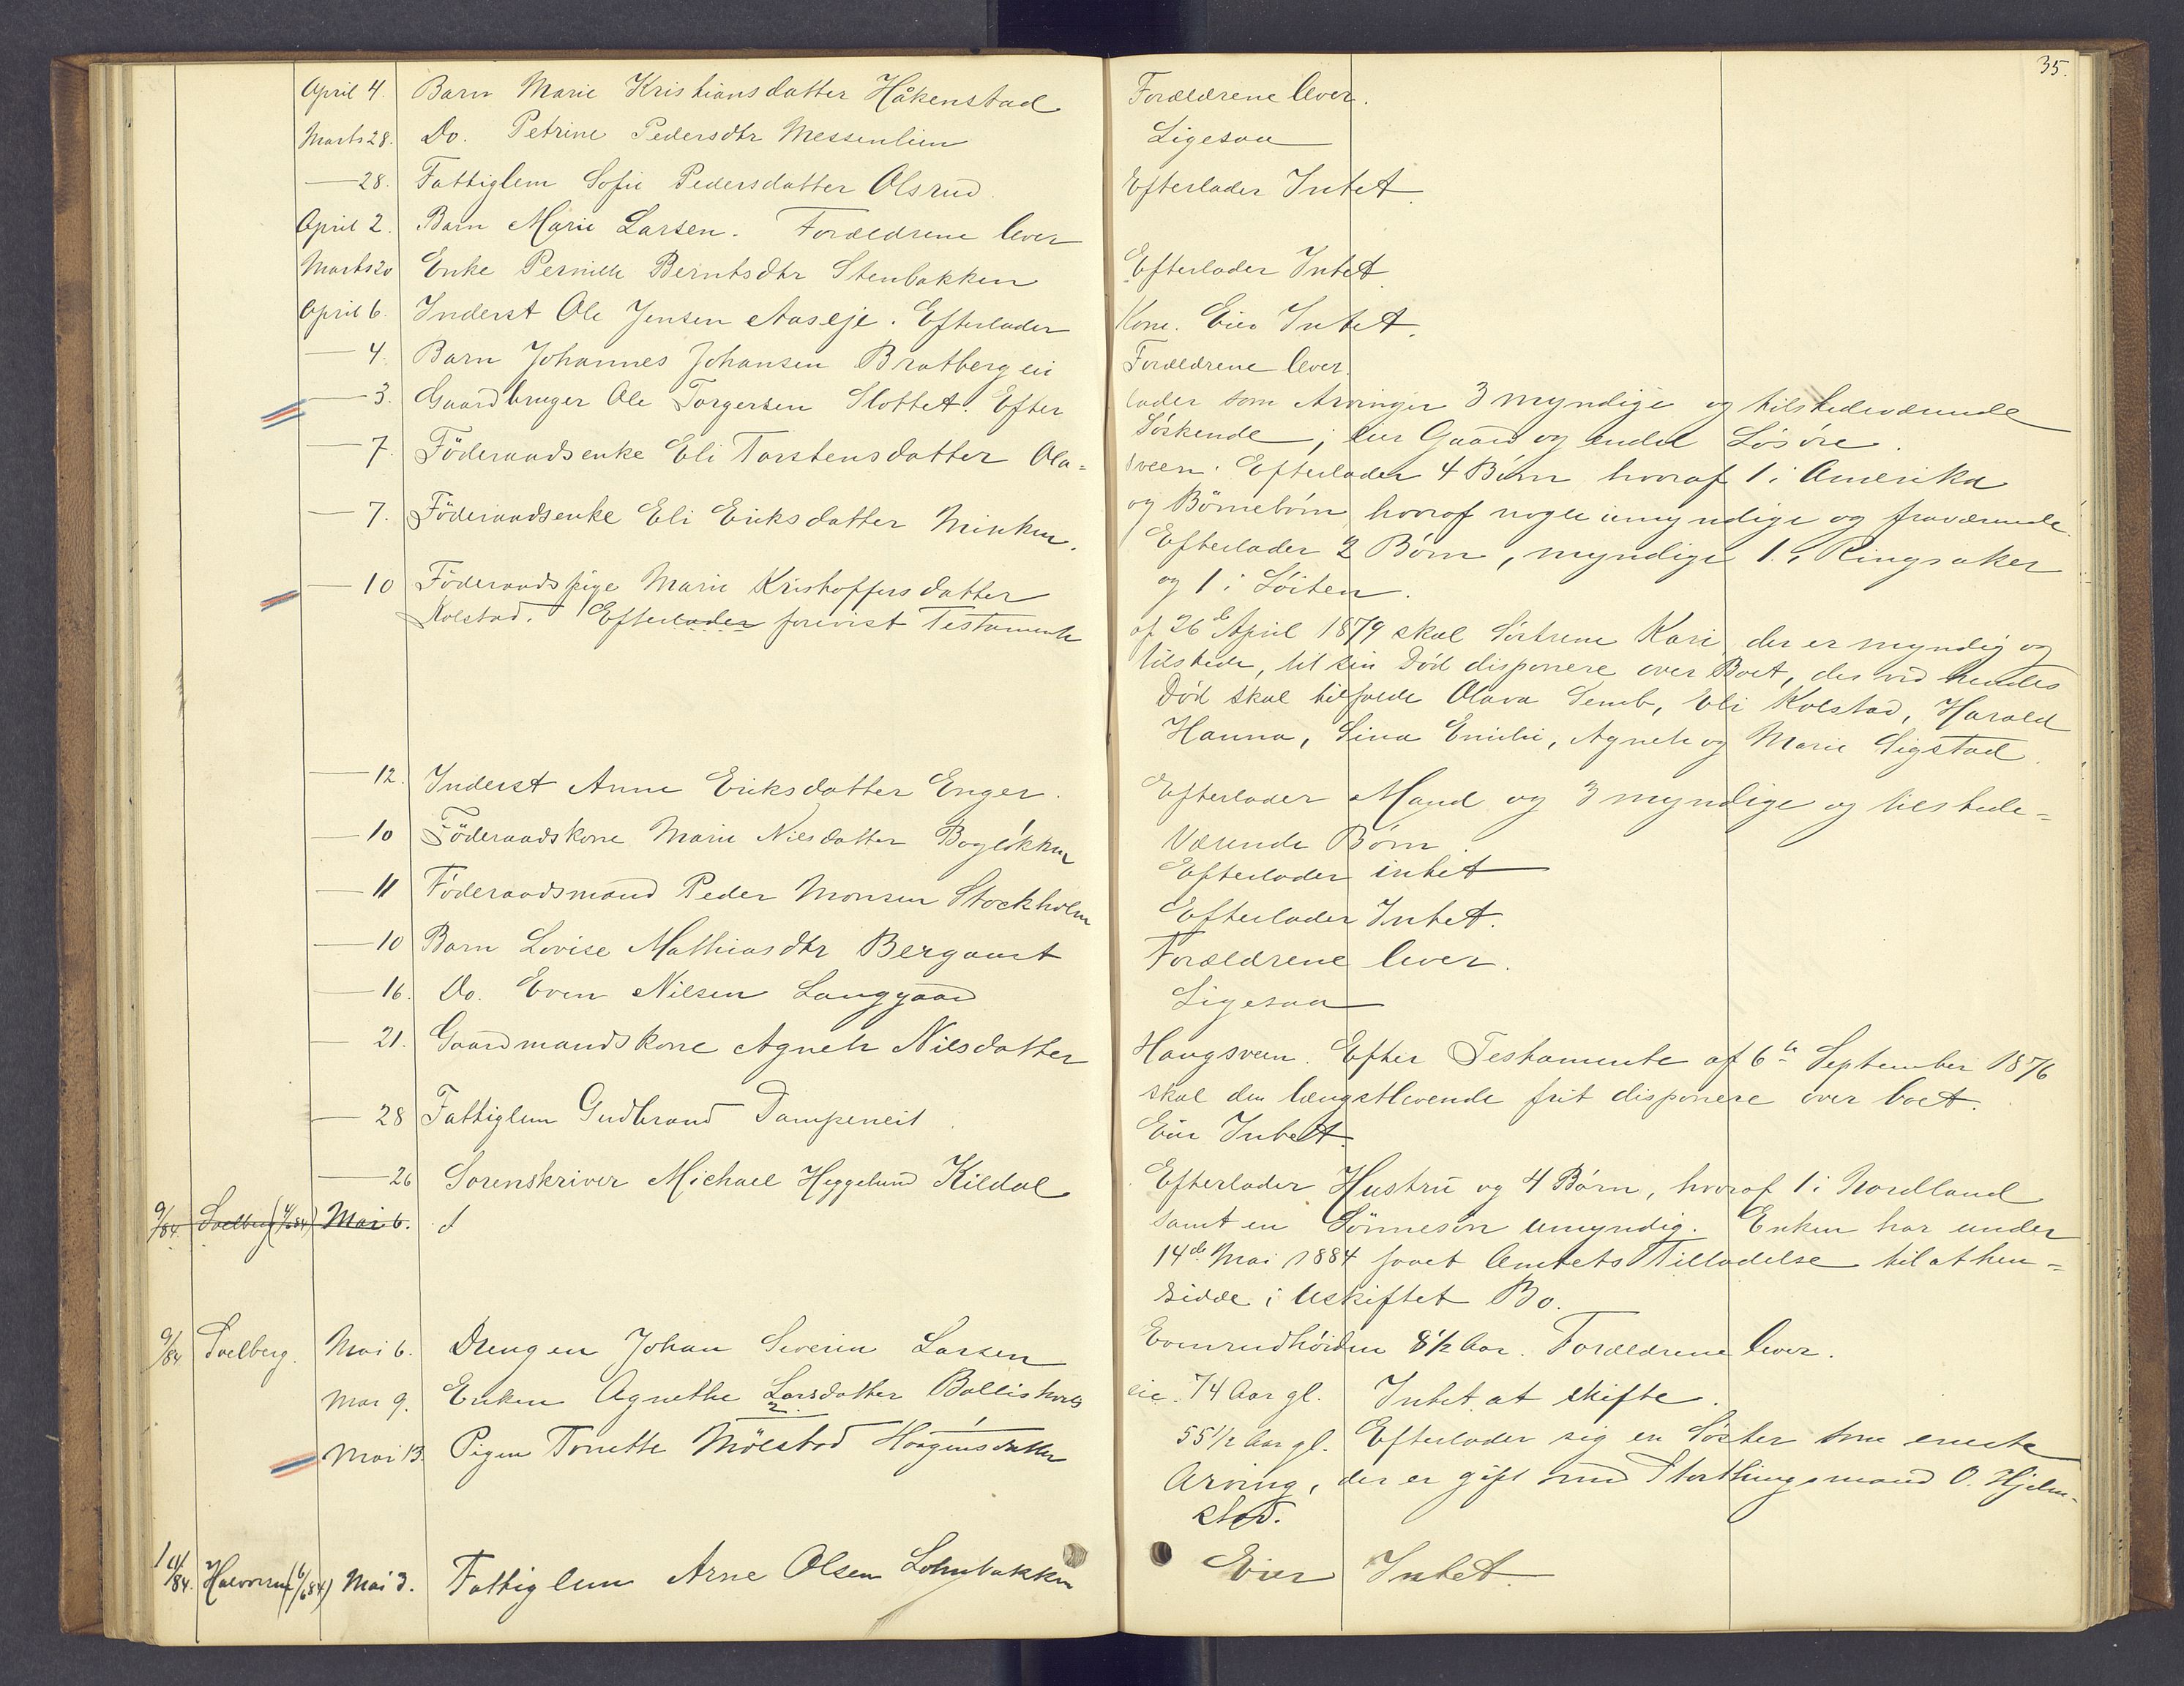 35.
April 4. Barn Marie Kristiansdatter Håkenstad Forældrene lever.
Marts 28. Do. Petrine Pedersdtr Messenlien Ligesaa
— 28. Fattiglem Sofie Pedersdatter Olsrud Efterlader Intet.
April 2. Barn Marie Larsen. Forældrene lever
Marts 20 Enke Pernille Berntsdtr Stenbakken Efterlader Intet.
April 6. Inderst Ole Jensen Aaseje. Efterlader Kone. Eier Intet.
— 4. Barn Johannes Johansen Bratberg eie Forældrene lever.
— 3. Gaardbruger Ole Torgersen Slottet. Efter
lader som Arvinger 3 myndige og tilstedeværende
Söskende; eier Gaard og endel Lösöre.
— 7. Föderaadsenke Eli Torstensdatter Ola=
sveen. Efterlader 4 Börn hvoraf 1 i Amerika
og Börnebörn hvoraf nogle umyndige og fraværende.
— 7. Föderaadsenke Eli Eriksdatter
Efterlader 2 Börn, myndige 1 i Ringsaker
og 1 i Löiten.
— 10 Föderaadspige Marie Kristoffersdatter
Kolstad. Efterlader forevist Testamente
af 26de April 1879 skal Söstrene Kari, der er myndig og
tilstede, til sin Död disponere over Boet, der ved hendes
Död skal tilfalde Olava Semb, Eli Kolstad, Harald
Hanna, Sina Emilie, Agnete og Marie Sigstad.
— 12. Inderst Anne Eriksdatter Enger.
Efterlader Mand og 3 myndige og tilstede=
Værende Börn.
— 10 Föderaadskone Marie Nilsdatter Boglökken Efterlader intet
— 11 Föderaadsmand Peder Monsen Stockholm Efterlader Intet.
— 10 Barn Lovise Mathiasdtr Bergaust Forældrene lever.
— 16. Do. Even Nilsen Langgaard Ligesaa
— 21. Gaardmandskone Agnete Nilsdatter
Haugsveen. Efter Testamente af 6te September 1876
skal den længstlevende frit disponere over boet.
— 28 Fattiglem Gudbrand Dampeneit. Eier Intet.
— 26 Sorenskriver Michael Heggelund Kildal
Efterlader Hustru og 4 Börn, hvoraf 1 i Nordland
9/84. Svelberg Mai 6. d
samt en Sönnesön umyndig. Enken har under
14de Mai 1884 faaet Amtets Tilladelse til at hen=
sidde i Uskiftet Bo.
9/84 Svelberg. Mai 6. Drengen Johan Severin Larsen
Evenrudhöiden 8 1/2 Aar. Forældrene lever.
Mai 9. Enken Agnethe Larsdatter Bollishol
eie. 74 Aar gl. Intet at skifte.
Mai 13. Pigen Tonette Mölstad Haagensdatter
55 1/2 Aar gl. Efterlader sig en Söster som eneste
Arving, der er gift med Storthingsmand O. Hjelm-
stad.
11/84. Halvorsen (6/6 84) Mai 3. Fattiglem Arne Olsen Lohnbakken Eier Intet.